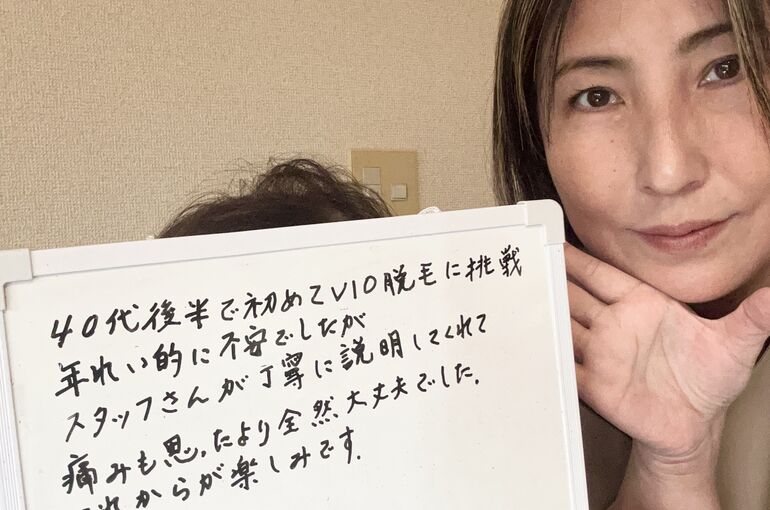 40代後半で初めてVIO脱毛に挑戦
年れい的に不安でしたが
スタッフさんが丁寧に説明してくれて
痛みも思ったより全然大丈夫でした.
これからが楽しみです.